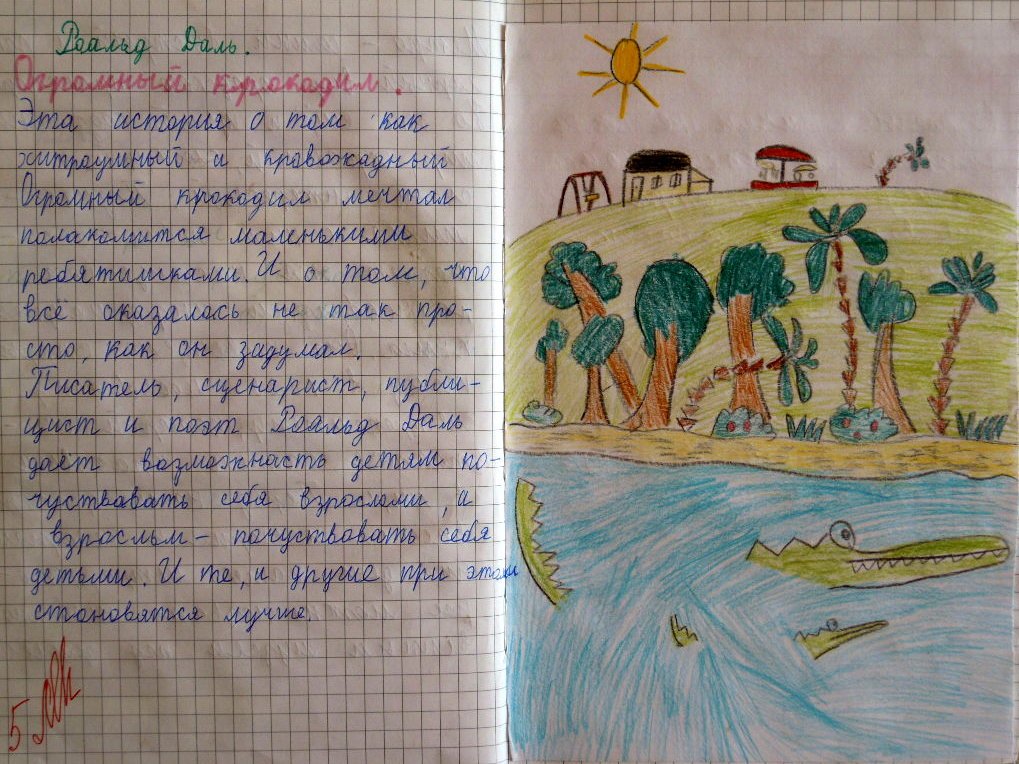 Роальд Даль.
Огромный крокодил.
Эта история о том как
хитроумный и кровожадный
Огромный крокодил мечтал
полакомится маленькими
ребятишками. И о том, что
всё оказалось не так про-
сто, как он задумал.
Писатель, сценарист, публи-
цист и поэт Роальд Даль
дает возможность детям по-
чуствавать себя взрослыми, а
взрослым - почуствовать себя
детьми. И те, и другие при этом
становятся лучше.
5